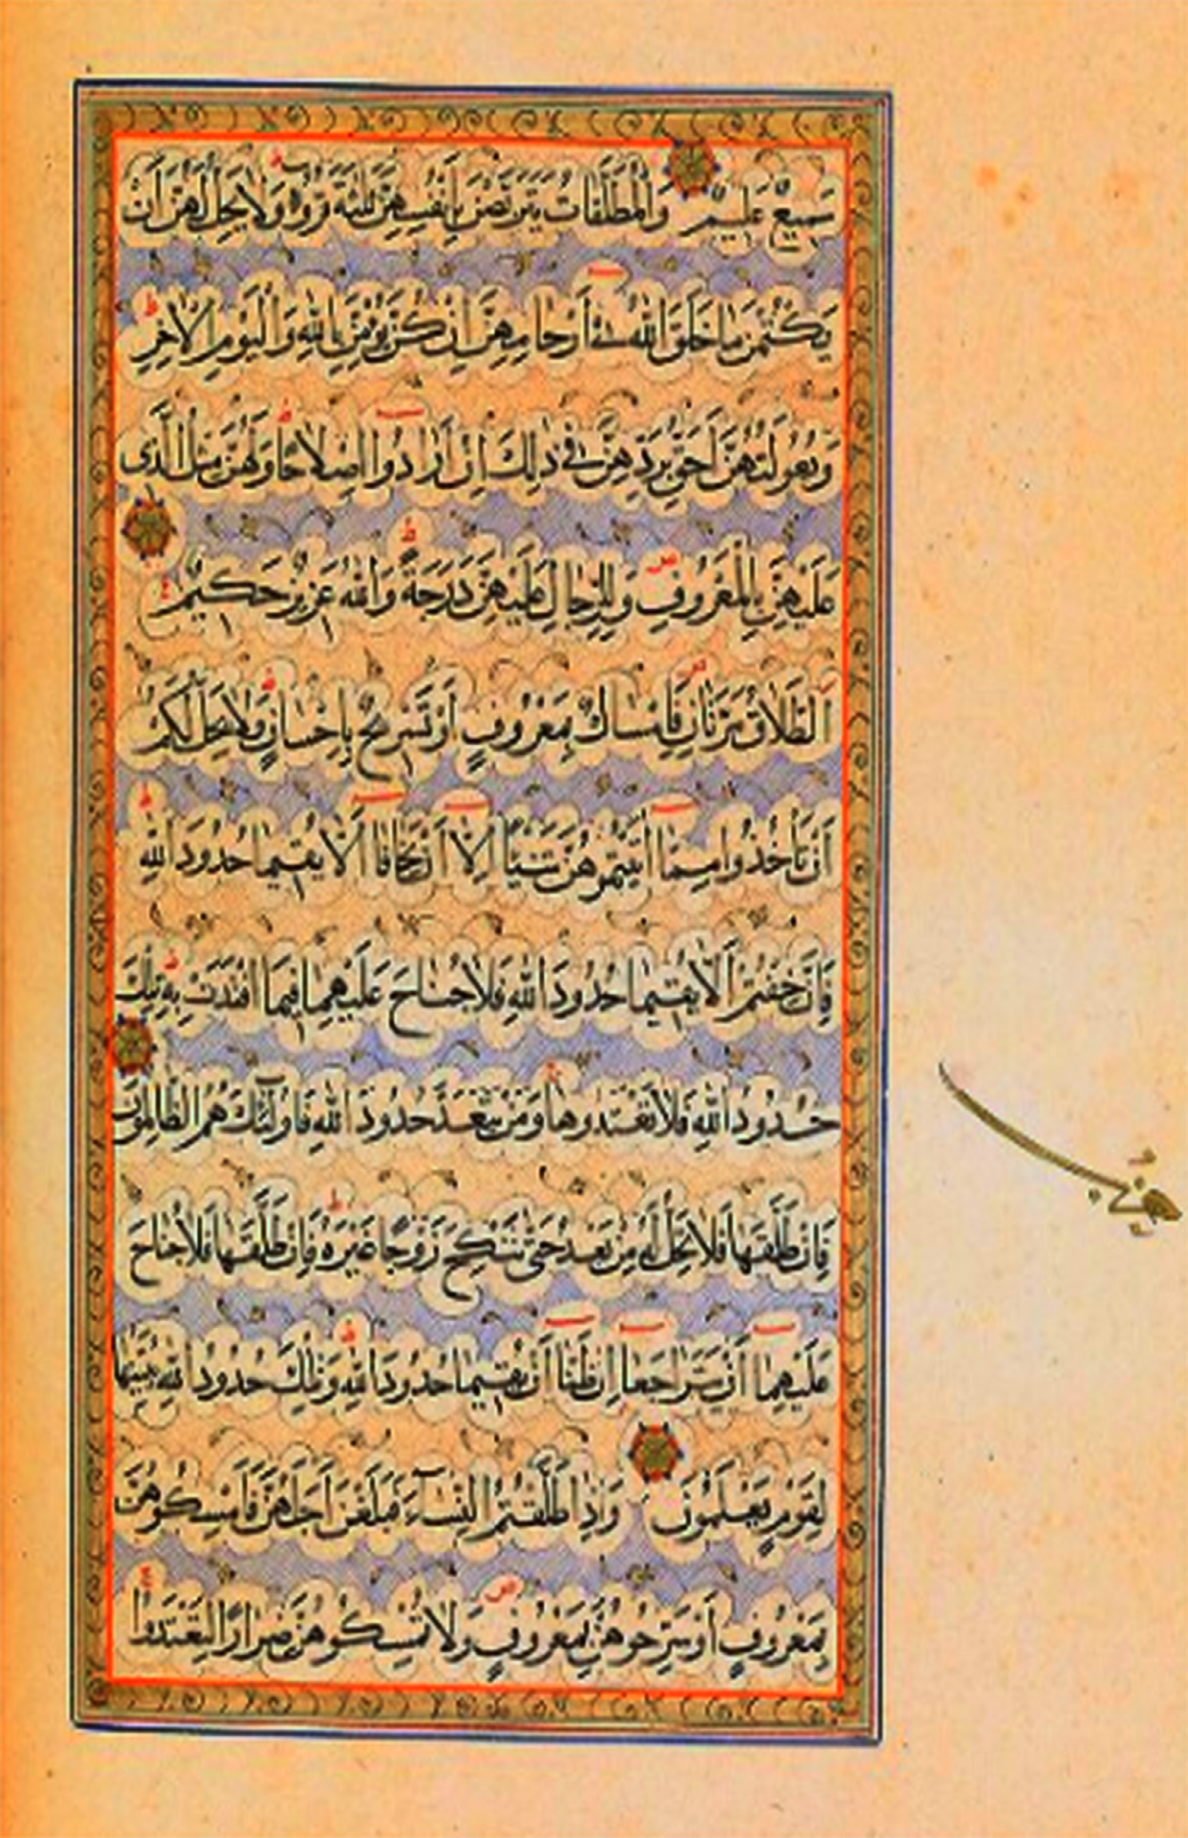 سَمِيعٌ عَلِيمٌ وَالْمُطَلَّقَاتُ يَتَرَبَّصْنَ بِأَنْفُسِهِنَّ ثَلٰثَةَ قُرُوءٍ وَلَا يَحِلُّ لَهُنَّ أَنْ
يَكْتُمْنَ مَا خَلَقَ اللّٰهُ فِي أَرْحَامِهِنَّ إِنْ كُنَّ يُؤْمِنَّ بِاللّٰهِ وَالْيَوْمِ الْاٰخِرِ
وَبُعُولَتُهُنَّ أَحَقُّ بِرَدِّهِنَّ فِي ذٰلِكَ إِنْ أَرَادُوا إِصْلَاحًا وَلَهُنَّ مِثْلُ الَّذِي
عَلَيْهِنَّ بِالْمَعْرُوفِ وَلِلرِّجَالِ عَلَيْهِنَّ دَرَجَةٌ وَاللّٰهُ عَزِيزٌ حَكِيمٌ
اَلطَّلَاقُ مَرَّتَانِ فَإِمْسَاكٌ بِمَعْرُوفٍ أَوْ تَسْرِيحٌ بِإِحْسَانٍ وَلَا يَحِلُّ لَكُمْ
أَنْ تَأْخُذُوا مِمَّا اٰتَيْتُمُوهُنَّ شَيْئًا إِلَّا أَنْ يَخَافَا أَلَّا يُقِيمَا حُدُودَ اللّٰهِ
فَإِنْ خِفْتُمْ أَلَّا يُقِيمَا حُدُودَ اللّٰهِ فَلَا جُنَاحَ عَلَيْهِمَا فِيمَا افْتَدَتْ بِهِ تِلْكَ
حُدُودُ اللّٰهِ فَلَا تَعْتَدُوهَا وَمَنْ يَتَعَدَّ حُدُودَ اللّٰهِ فَأُولٰئِكَ هُمُ الظَّالِمُونَ
فَإِنْ طَلَّقَهَا فَلَا تَحِلُّ لَهُ مِنْ بَعْدُ حَتّٰى تَنْكِحَ زَوْجًا غَيْرَهُ فَإِنْ طَلَّقَهَا فَلَا جُنَاحَ
عَلَيْهِمَا أَنْ يَتَرَاجَعَا إِنْ ظَنَّا أَنْ يُقِيمَا حُدُودَ اللّٰهِ وَتِلْكَ حُدُودُ اللّٰهِ يُبَيِّنُهَا
لِقَوْمٍ يَعْلَمُونَ وَإِذَا طَلَّقْتُمُ النِّسَآءَ فَبَلَغْنَ أَجَلَهُنَّ فَأَمْسِكُوهُنَّ
بِمَعْرُوفٍ أَوْ سَرِّحُوهُنَّ بِمَعْرُوفٍ وَلَا تُمْسِكُوهُنَّ ضِرَارًا لِتَعْتَدُوا